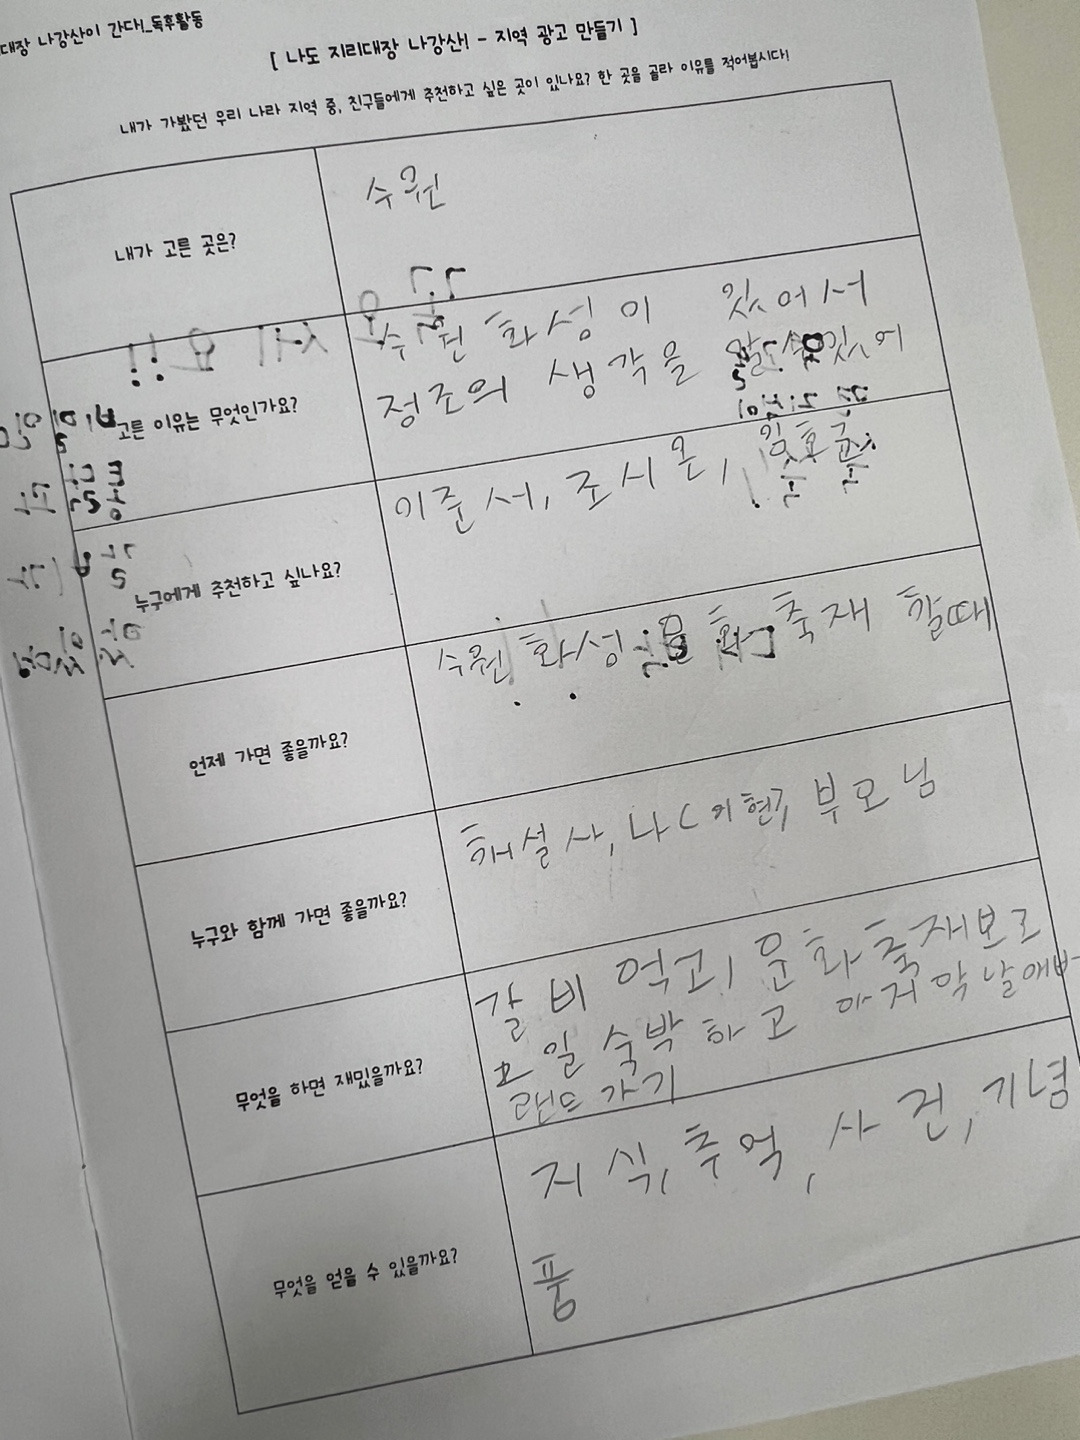 대장 나강산이 간다!_독후활동
[ 나도 지리대장 나강산! - 지역 광고 만들기 ]
내가 가봤던 우리 나라 지역 중, 친구들에게 추천하고 싶은 곳이 있나요? 한 곳을 골라 이유를 적어봅시다!
내가 고른 곳은?
수원
고른 이유는 무엇인가요?
수원 화성이 있어서
정조의 생각을 알 수 있어
누구에게 추천하고 싶나요?
이준서, 조시온,
언제 가면 좋을까요?
수원 화성 문화 축재 할때
누구와 함께 가면 좋을까요?
해설사, 나 부모님
무엇을 하면 재밌을까요?
갈비 먹고, 문화축재보고
일 숙박하고 마지막날에버
랜드 가기
무엇을 얻을 수 있을까요?
지식, 추억, 사건, 기념
품